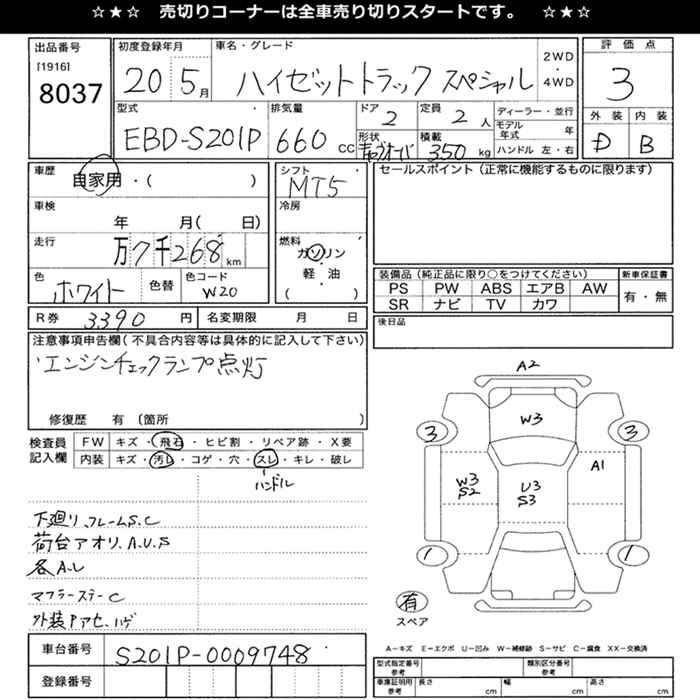 ☆★☆ 売切りコーナーは全車売り切りスタートです。 ☆★☆
出品番号 初度登録年月 車名・グレード 2WD・4WD 評価点
[1916]
8037 20 5月 ハイゼットトラック スペシャル 3
型式 排気量 ドア 定員 ディーラー・並行 外装 内装
EBD-S201P 660 CC 2 2人 モデル年式 年 D B
形状 積載
キャブオーバ 350 kg ハンドル 左・右
車歴 自家用・( ) シフト セールスポイント (正常に機能するものに限ります)
MT5
車検 冷房
年 月( 日)
走行 燃料
万7千268 km ガソリン
軽・油
( )
色 色替 色コード 装備品 (純正品に限り○をつけてください) 新車保証書
ホワイト W20 PS PW ABS エアB AW 有・無
SR ナビ TV カワ
R券 3390 円 名変期限 月 日 後日品
注意事項申告欄 (不具合内容等は具体的に記入して下さい)
エンジンチェックランプ点灯
修復歴 有 (箇所 )
検査員 FW キズ・飛石・ヒビ割・リペア跡・X要
記入欄 内装 キズ・汚レ・コゲ・穴・スレ・キレ・破レ
ハンドル
下廻リ フレームS.C
荷台アオリ.A.U.S
各A.L
マフラーステーC
外装Pアセ.ハゲ
A2
W3
3 3
W3
S2
U3
S3
A1
1 1
有
スペア
A-キズ E-エクボ U-凹み W-補修跡 S-サビ C-腐食 XX-交換済
車台番号 S201P-0009748
登録番号
型式指定番号 参考 類別区分番号 参考
車庫証明用 参考 長さ cm 幅 cm 高さ cm